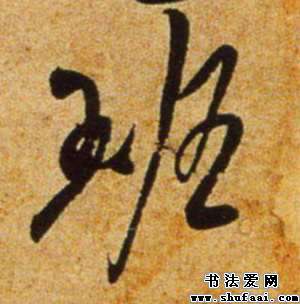 班
书法爱网
www.shufaai.com